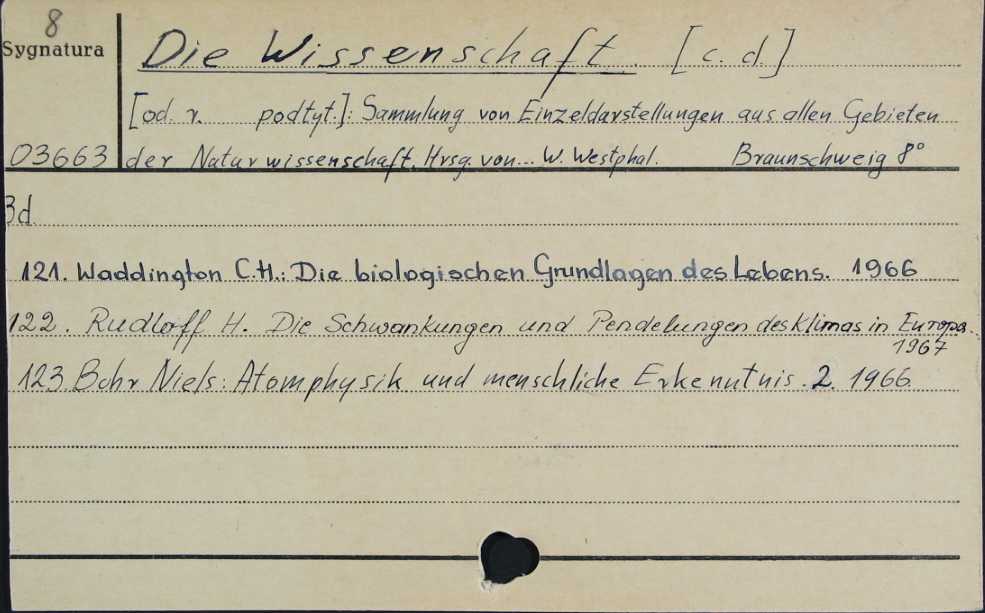 8
Sygnatura
Die Wissenschaft. [c. d.]
[od. r. podtyt.]: Sammlung von Einzeldarstellungen aus allen Gebieten
03663 der Naturwissenschaft. Hrsg. von... W. Westphal. Braunschweig 8°
Bd.
121. Waddington C.H.: Die biologischen Grundlagen des Lebens. 1966
122. Rudloff H. Die Schwankungen und Pendelungen des Klimas in Europa.
1967
123. Bohr Niels: Atomphysik und menschliche Erkenntnis. 2. 1966